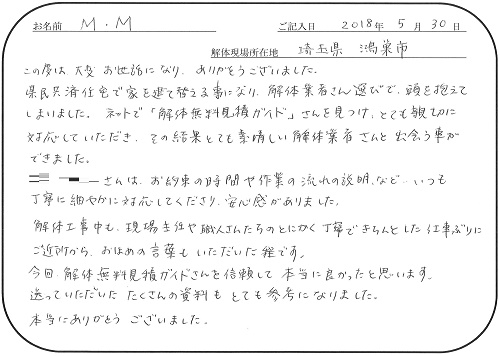 お名前 M・M ご記入日 2018年 5月 30日
解体現場所在地 埼玉県 鴻巣市
この度は、大変お世話になり、ありがとうございました。
県民共済住宅で家を建て替える事になり、解体業者さん選びで、頭を抱えて
しまいました。ネットで「解体無料見積ガイド」さんを見つけ、とても親切に
対応していただき、その結果とても素晴しい解体業者さんと出会う事が
できました。
さんは、お約束の時間や作業の流れの説明、など…いつも
丁寧に細やかに対応してくださり、安心感がありました。
解体工事中も、現場主任や職人さんたちのとにかく丁寧できちんとした仕事ぶりに
ご近所から、おほめの言葉もいただいた程です。
今回、解体無料見積ガイドさんを信頼して本当に良かったと思います。
送っていただいたたくさんの資料もとても参考になりました。
本当にありがとうございました。